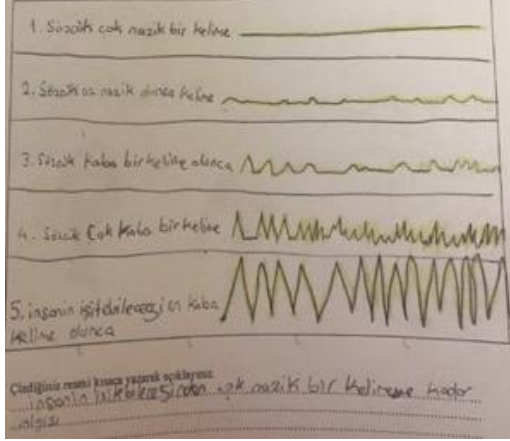 1. Sözcük çok nazik bir kelime
2. Sözcük az nazik olunca kelime
3. Sözcük kaba bir kelime olunca
4. Sözcük Çok kaba bir kelime
5. insanın işitebileceği en kaba
kelime olunca
Çizdiğiniz resmi kısaca yazarak açıklayınız.
insanın çok nazik bir kelimeye kadar
algısı